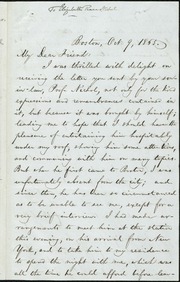 To Elizabeth Pease Nichol
Boston, Oct. 9, 1885.
My Dear Friend:
I was thrilled with delight on
receiving the letter you sent by your son-
in-law, Prof. Nichol, not only for the kind
expressions and remembrances contained in
it, but because it was brought by himself;
leading me to hope that I should have the
pleasure of entertaining him hospitably
under my roof, showing him some atten-
tion, and communing with him on many topics.
But when he first came to Boston, I was
unfortunately absent from the city; and
since then, he has been so circumstanced
as to be unable to see me, except for a
very brief interview. I had made ar-
rangements to meet him at the station
this evening, on his arrival from New
York, and to take him to my residence
to spend the night with me, which was
all the time he could afford before leav-